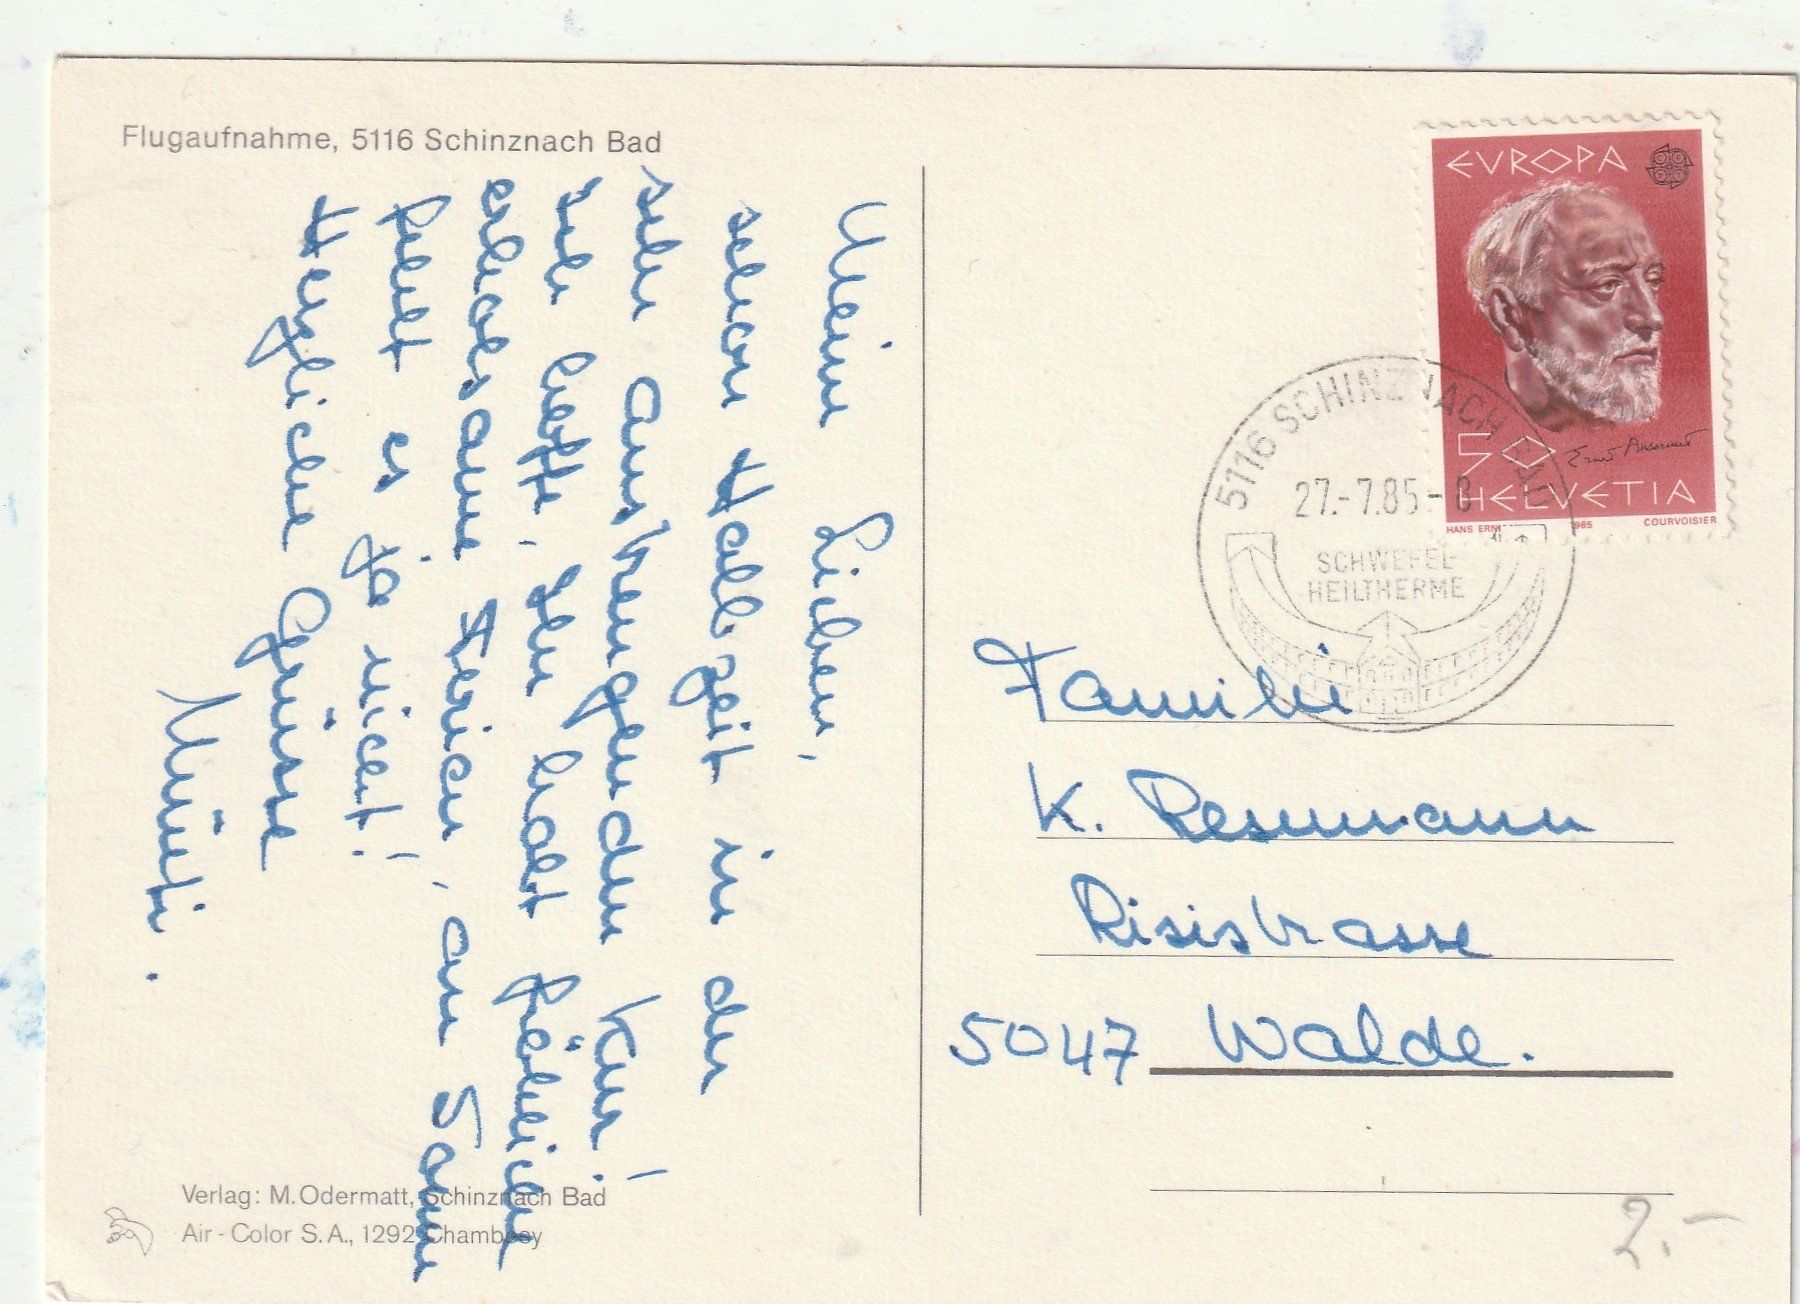 Flugaufnahme, 5116 Schinznach Bad
Meine Lieben,
schon Halbzeit in der
sehr anstrengenden Kur!
Ich hoffe, Ihr habt
erholsame Ferien, an
fehlt es ja nicht!
Herzliche Grüsse
Müeti.
Verlag: M. Odermatt, Schinznach Bad
Air-Color S.A., 1292 Chambésy
EVROPA
CEPT
50
Ernest Ansermet
HELVETIA
HANS ERNI 1985 COURVOISIER
5116 SCHINZNACH BAD
27.-7.85-8
SCHWEFEL
HEILTHERME
Familie
K. Resumann
Risistrasse
5047 Walde.
2.-